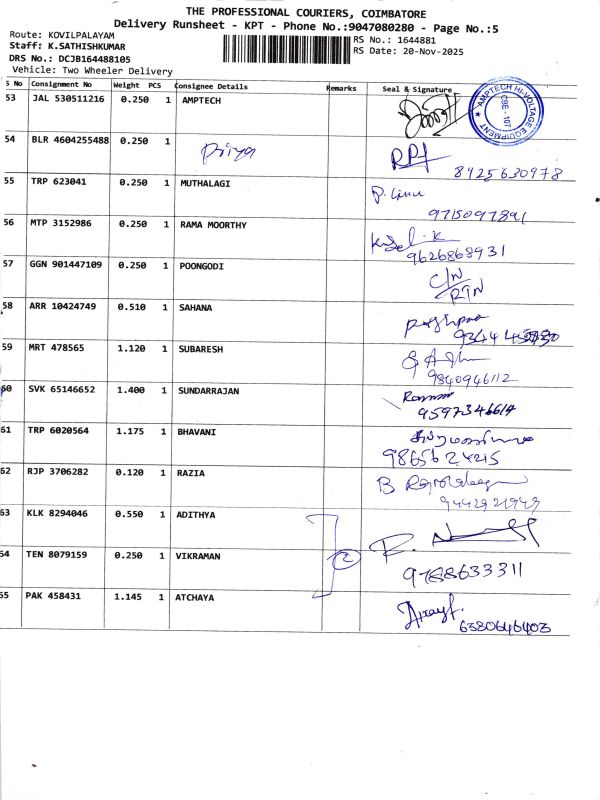 THE PROFESSIONAL COURIERS, COIMBATORE
Delivery Runsheet - KPT - Phone No.:9047080280 - Page No.:5
Route: KOVILPALAYAM
Staff: K.SATHISHKUMAR
DRS No.: DCJB164488105
Vehicle: Two Wheeler Delivery
RS No.: 1644881
RS Date: 20-Nov-2025
S No Consignment No Weight PCS Consignee Details Remarks Seal & Signature
53 JAL 530511216 0.250 1 AMPTECH
AMPTECH HI-VOLTAGE EQUIPMENT ★ CBE - 107
54 BLR 4604255488 0.250 1 Priya 8925630978
55 TRP 623041 0.250 1 MUTHALAGI
9715097891
56 MTP 3152986 0.250 1 RAMA MOORTHY
9626868931
57 GGN 901447109 0.250 1 POONGODI C/N
RTN
58 ARR 10424749 0.510 1 SAHANA
59 MRT 478565 1.120 1 SUBARESH
9840946112
60 SVK 65146652 1.400 1 SUNDARRAJAN
9597346614
61 TRP 6020564 1.175 1 BHAVANI
9865624215
62 RJP 3706282 0.120 1 RAZIA
9442921949
63 KLK 8294046 0.550 1 ADITHYA
64 TEN 8079159 0.250 1 VIKRAMAN 2
9788633311
65 PAK 458431 1.145 1 ATCHAYA
6380646403